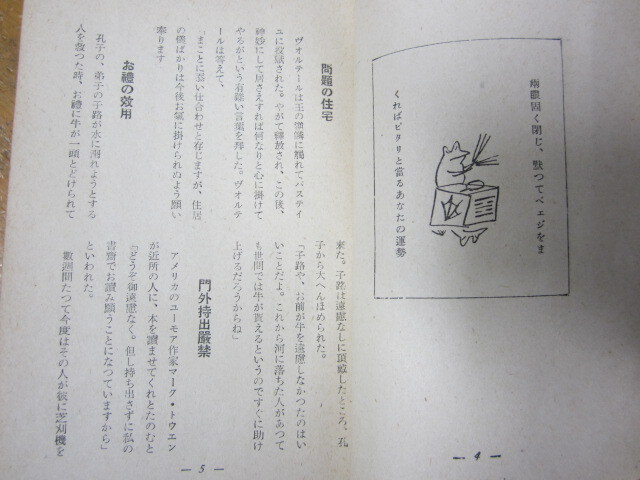 兩眼固く閉じ、默つてペエジをま
くればピタリと當るあなたの運勢
— 4 —
問題の住宅
ヴォルテールは王の逆鱗に觸れてバスティ
ユに投獄された。やがて釋放され、この後、
神妙にして居さえすれば何なりと心に掛けて
やるがという有難い言葉を拜した。ヴォルテ
ールは答えて、
「まことに忝い仕合わせと存じますが、住居
の儀ばかりは今後お氣に掛けられぬよう願い
奉ります」
お禮の效用
孔子の、弟子の子路が水に溺れようとする
人を救つた時、お禮に牛が一頭とどけられて
來た。子路は遠慮なしに頂戴したところ、孔
子から大へんほめられた。
「子路や、お前が牛を遠慮しなかつたのはい
いことだよ。これから河に落ちた人があつて
も世間では牛が貰えるというのですぐに助け
上げるだろうからね」
門外持出嚴禁
アメリカのユーモア作家マーク・トウエン
が近所の人に、本を讀ませてくれとたのむと
「どうぞ御遠慮なく。但し持ち出さずに私の
書齋でお讀み願うことになつていますから」
といわれた。
數週間たつて今度はその人が彼に芝刈機を
— 5 —